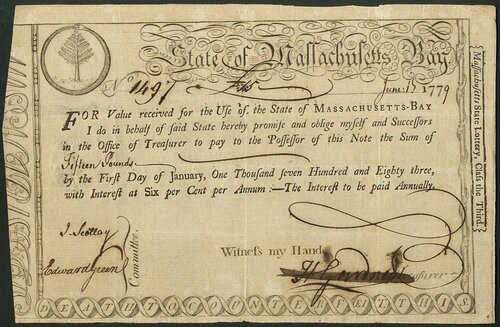 State of Massachusetts Bay
No 1497 £15 June 1st 1779
FOR Value received for the Use of the State of MASSACHUSETTS-BAY
I do in behalf of said State hereby promise and oblige myself and Successors
in the Office of Treasurer to pay to the Possessor of this Note the Sum of
Fifteen Pounds
by the First Day of January, One Thousand seven Hundred and Eighty three,
with Interest at Six per Cent per Annum :—The Interest to be paid Annually.
Witness my Hand
J. Scollay
Edward Green
Committee.
H Gardner Treasurer
Massachusetts State Lottery, Class the Third.
DEATH TO COUNTERFEIT THIS